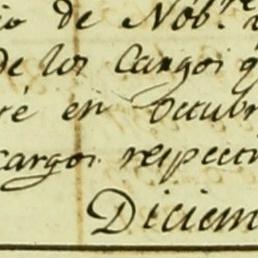 io de Nob.re
de los Cargos q
ré en Octubr
cargos respecti
Diciem